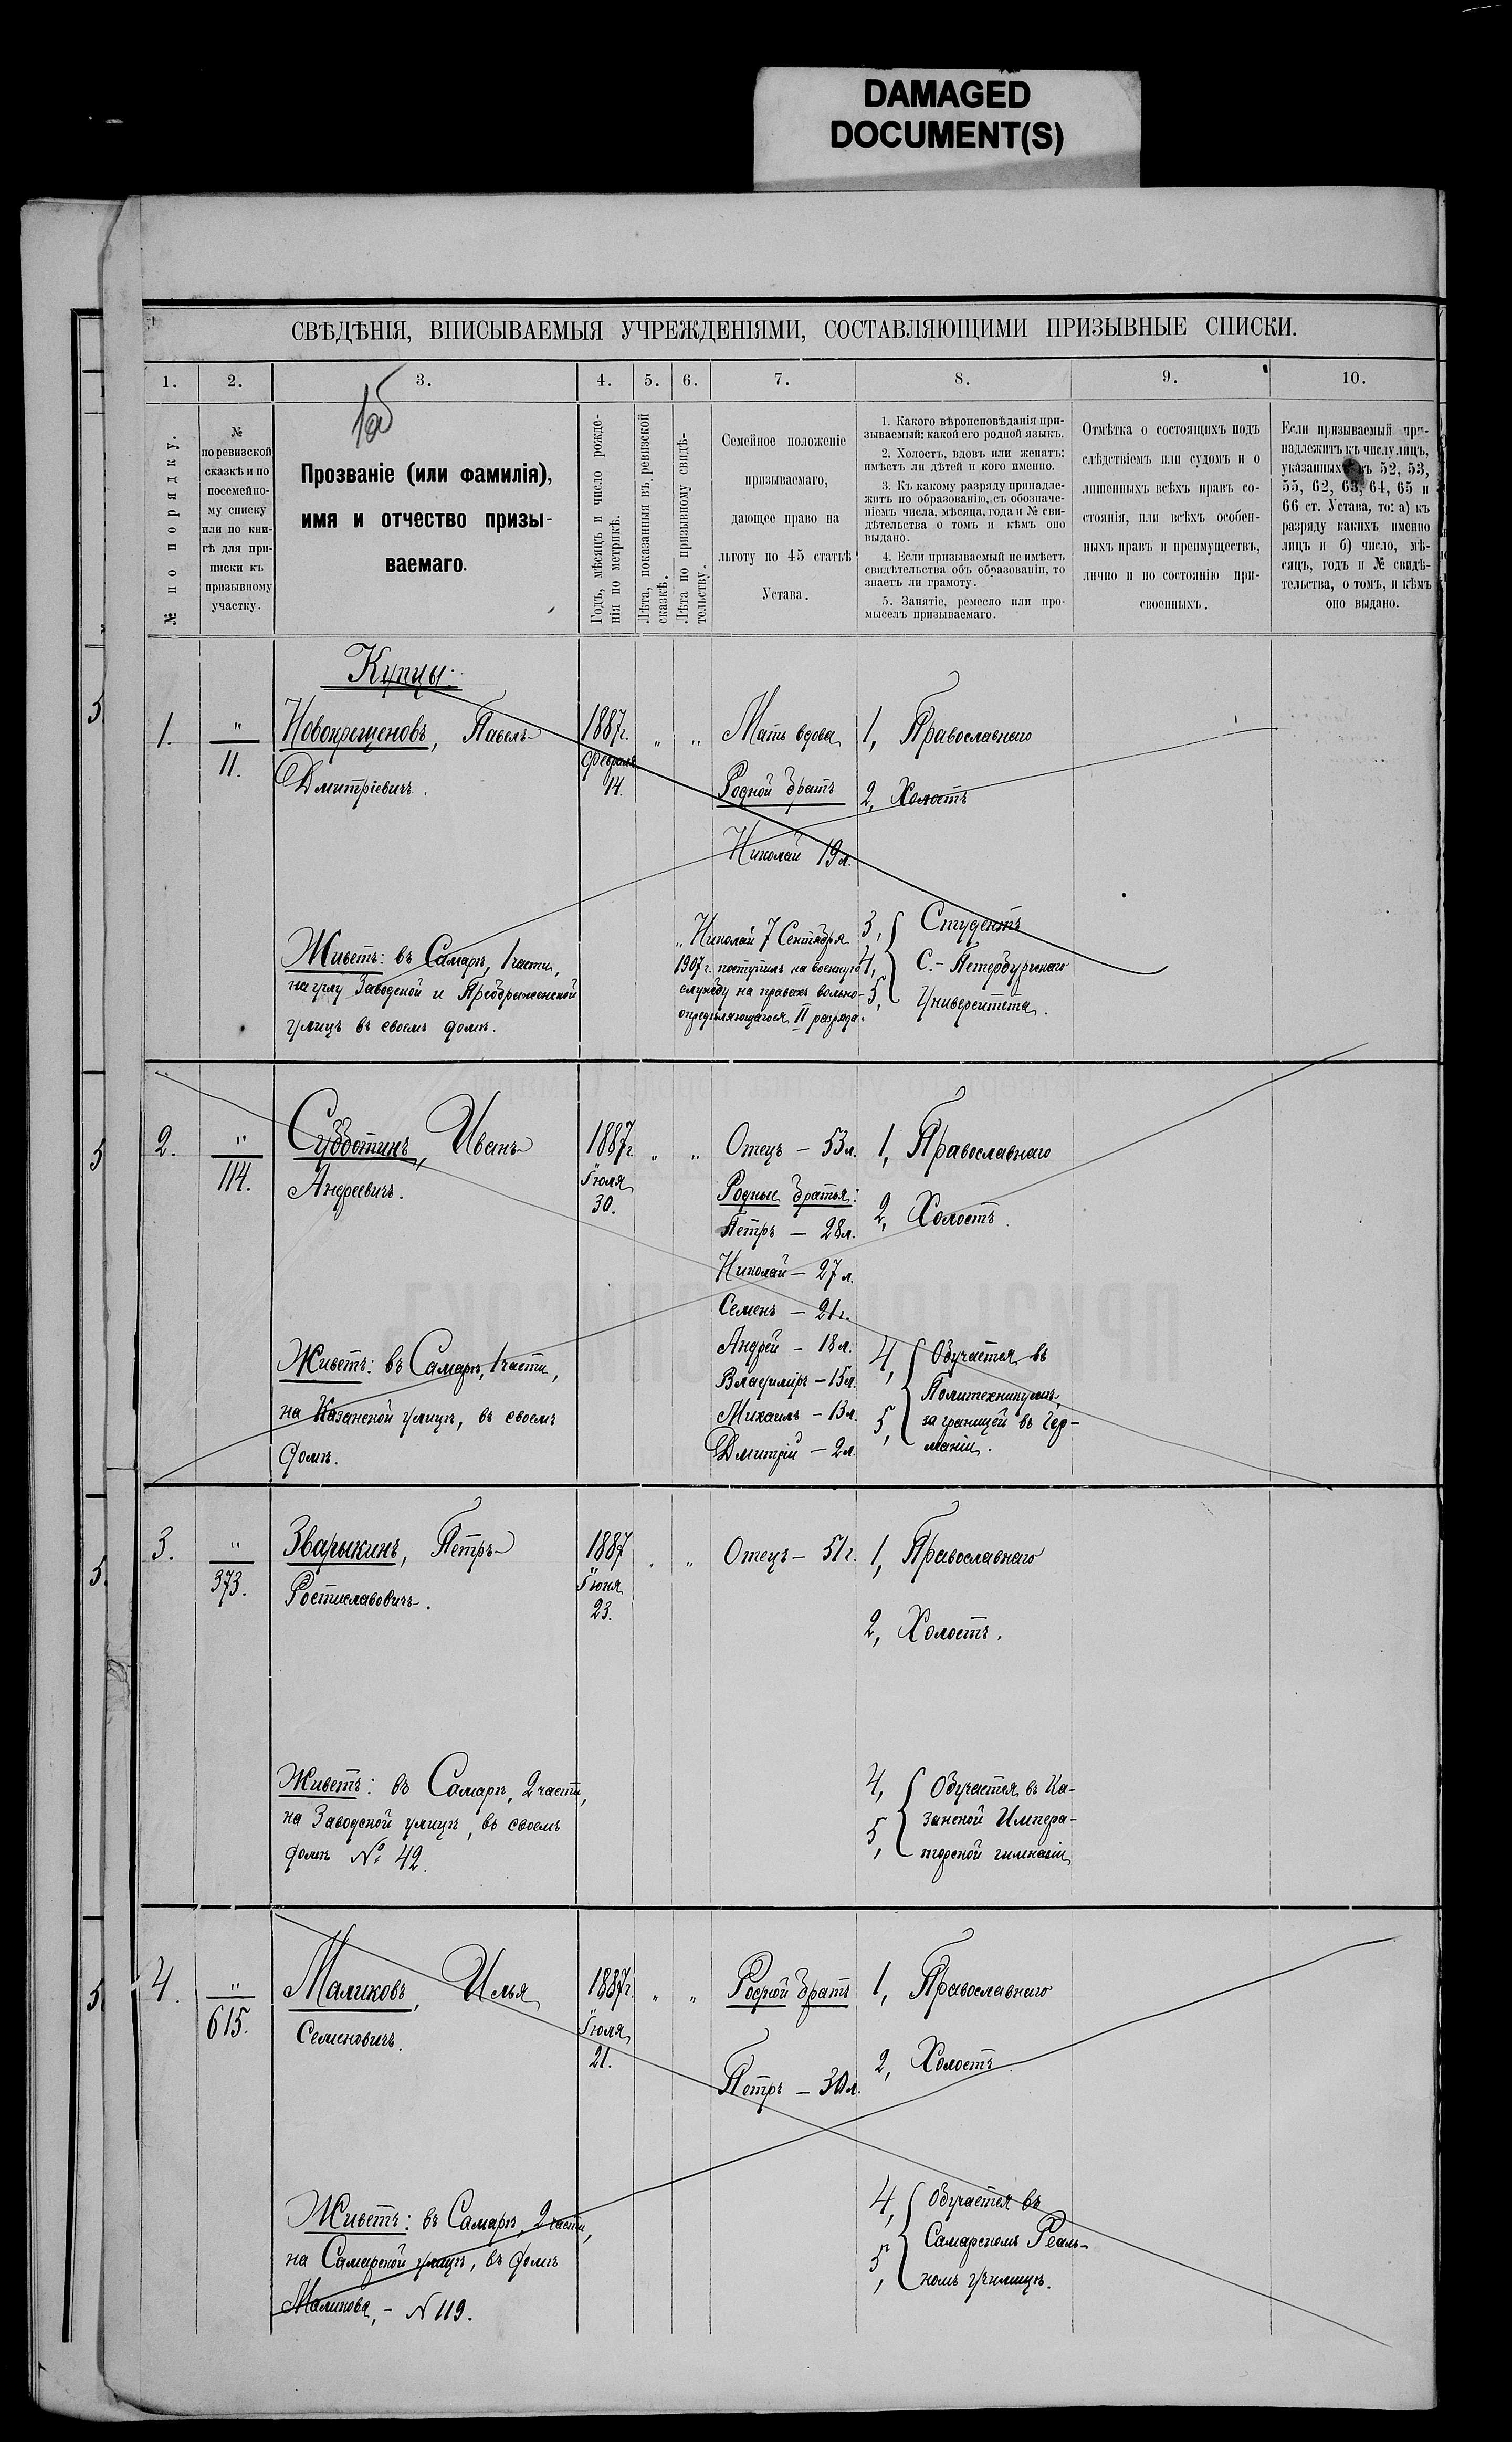 DAMAGED
DOCUMENT(S)
СВѢДѢНІЯ, ВПИСЫВАЕМЫЯ УЧРЕЖДЕНІЯМИ, СОСТАВЛЯЮЩИМИ ПРИЗЫВНЫЕ СПИСКИ.
1.
2.
3.
4.
5.
6.
7.
8.
9.
10.
№ по порядку.
№
по ревизской
сказкѣ и по
посемейно-
му списку
или по кни-
гѣ для при-
писки къ
призывному
участку.
Прозваніе (или фамилія),
имя и отчество призы-
ваемаго.
Годъ, мѣсяцъ и число рожде-
нія по метрикѣ.
Лѣта, показанныя въ ревизской
сказкѣ.
Лѣта по призывному свидѣ-
тельству.
Семейное положеніе
призываемаго,
дающее право на
льготу по 45 статьѣ
Устава.
1. Какого вѣроисповѣданія при-
зываемый: какой его родной языкъ.
2. Холостъ, вдовъ или женатъ;
имѣетъ ли дѣтей и кого именно.
3. Къ какому разряду принадле-
житъ по образованію, съ обозначе-
ніемъ числа, мѣсяца, года и № сви-
дѣтельства о томъ и кѣмъ оно
выдано.
4. Если призываемый не имѣетъ
свидѣтельства объ образованіи, то
знаетъ ли грамоту.
5. Занятіе, ремесло или про-
мыселъ призываемаго.
Отмѣтка о состоящихъ подъ
слѣдствіемъ или судомъ и о
лишенныхъ всѣхъ правъ со-
стоянія, или всѣхъ особен-
ныхъ правъ и преимуществъ,
лично и по состоянію при-
своенныхъ.
Если призываемый при-
надлежитъ къ числу лицъ,
указанныхъ въ 52, 53,
55, 62, 63, 64, 65 и
66 ст. Устава, то: а) къ
разряду какихъ именно
лицъ и б) число, мѣ-
сяцъ, годъ и № свидѣ-
тельства, о томъ, и кѣмъ
оно выдано.
Купцы:
1.
"
11.
Новокрещеновъ, Павелъ
Дмитріевичъ.
Живетъ: въ Самарѣ, 1 части,
на углу Заводской и Преображенской
улицъ въ своемъ домѣ.
1887г.
Февраля
14.
" "
Мать вдова
Родной братъ
Николай 19 л.
"Николай 7 Сентября
1907 г. поступилъ на военную
службу на правахъ вольно-
опредѣляющагося II разряда.
1, Православнаго
2, Холостъ
3, Студентъ
4, С.-Петербургскаго
5, Университета.
2.
"
114.
Субботинъ, Иванъ
Андреевичъ.
Живетъ: въ Самарѣ, 1 части,
на Казанской улицѣ, въ своемъ
домѣ.
1887г.
Іюля
30.
" "
Отецъ — 53 л.
Родные братья:
Петръ — 28 л.
Николай — 27 л.
Семенъ — 21 г.
Андрей — 18 л.
Владиміръ — 15 л.
Михаилъ — 13 л.
Дмитрій — 2 л.
1, Православнаго
2, Холостъ.
4, Обучается въ
Политехникумѣ,
5, за границей въ Гер-
маніи.
3.
"
373.
Зварыкинъ, Петръ
Ростиславовичъ.
Живетъ: въ Самарѣ, 2 части,
на Заводской улицѣ, въ своемъ
домѣ № 42.
1887
Іюня
23.
" "
Отецъ — 51 г.
1, Православнаго
2, Холостъ.
4, Обучается въ Ка-
занской Импера-
5, торской гимназіи
4.
"
615.
Маликовъ, Илья
Семеновичъ.
Живетъ: въ Самарѣ, 2 части,
на Самарской улицѣ, въ домѣ
Маликова, — № 119.
1887г.
Іюля
21.
" "
Родной братъ
Петръ — 30 л.
1, Православнаго
2, Холостъ
4, Обучается въ
Самарскомъ Реаль-
5, номъ училищѣ.
5
5
5
5